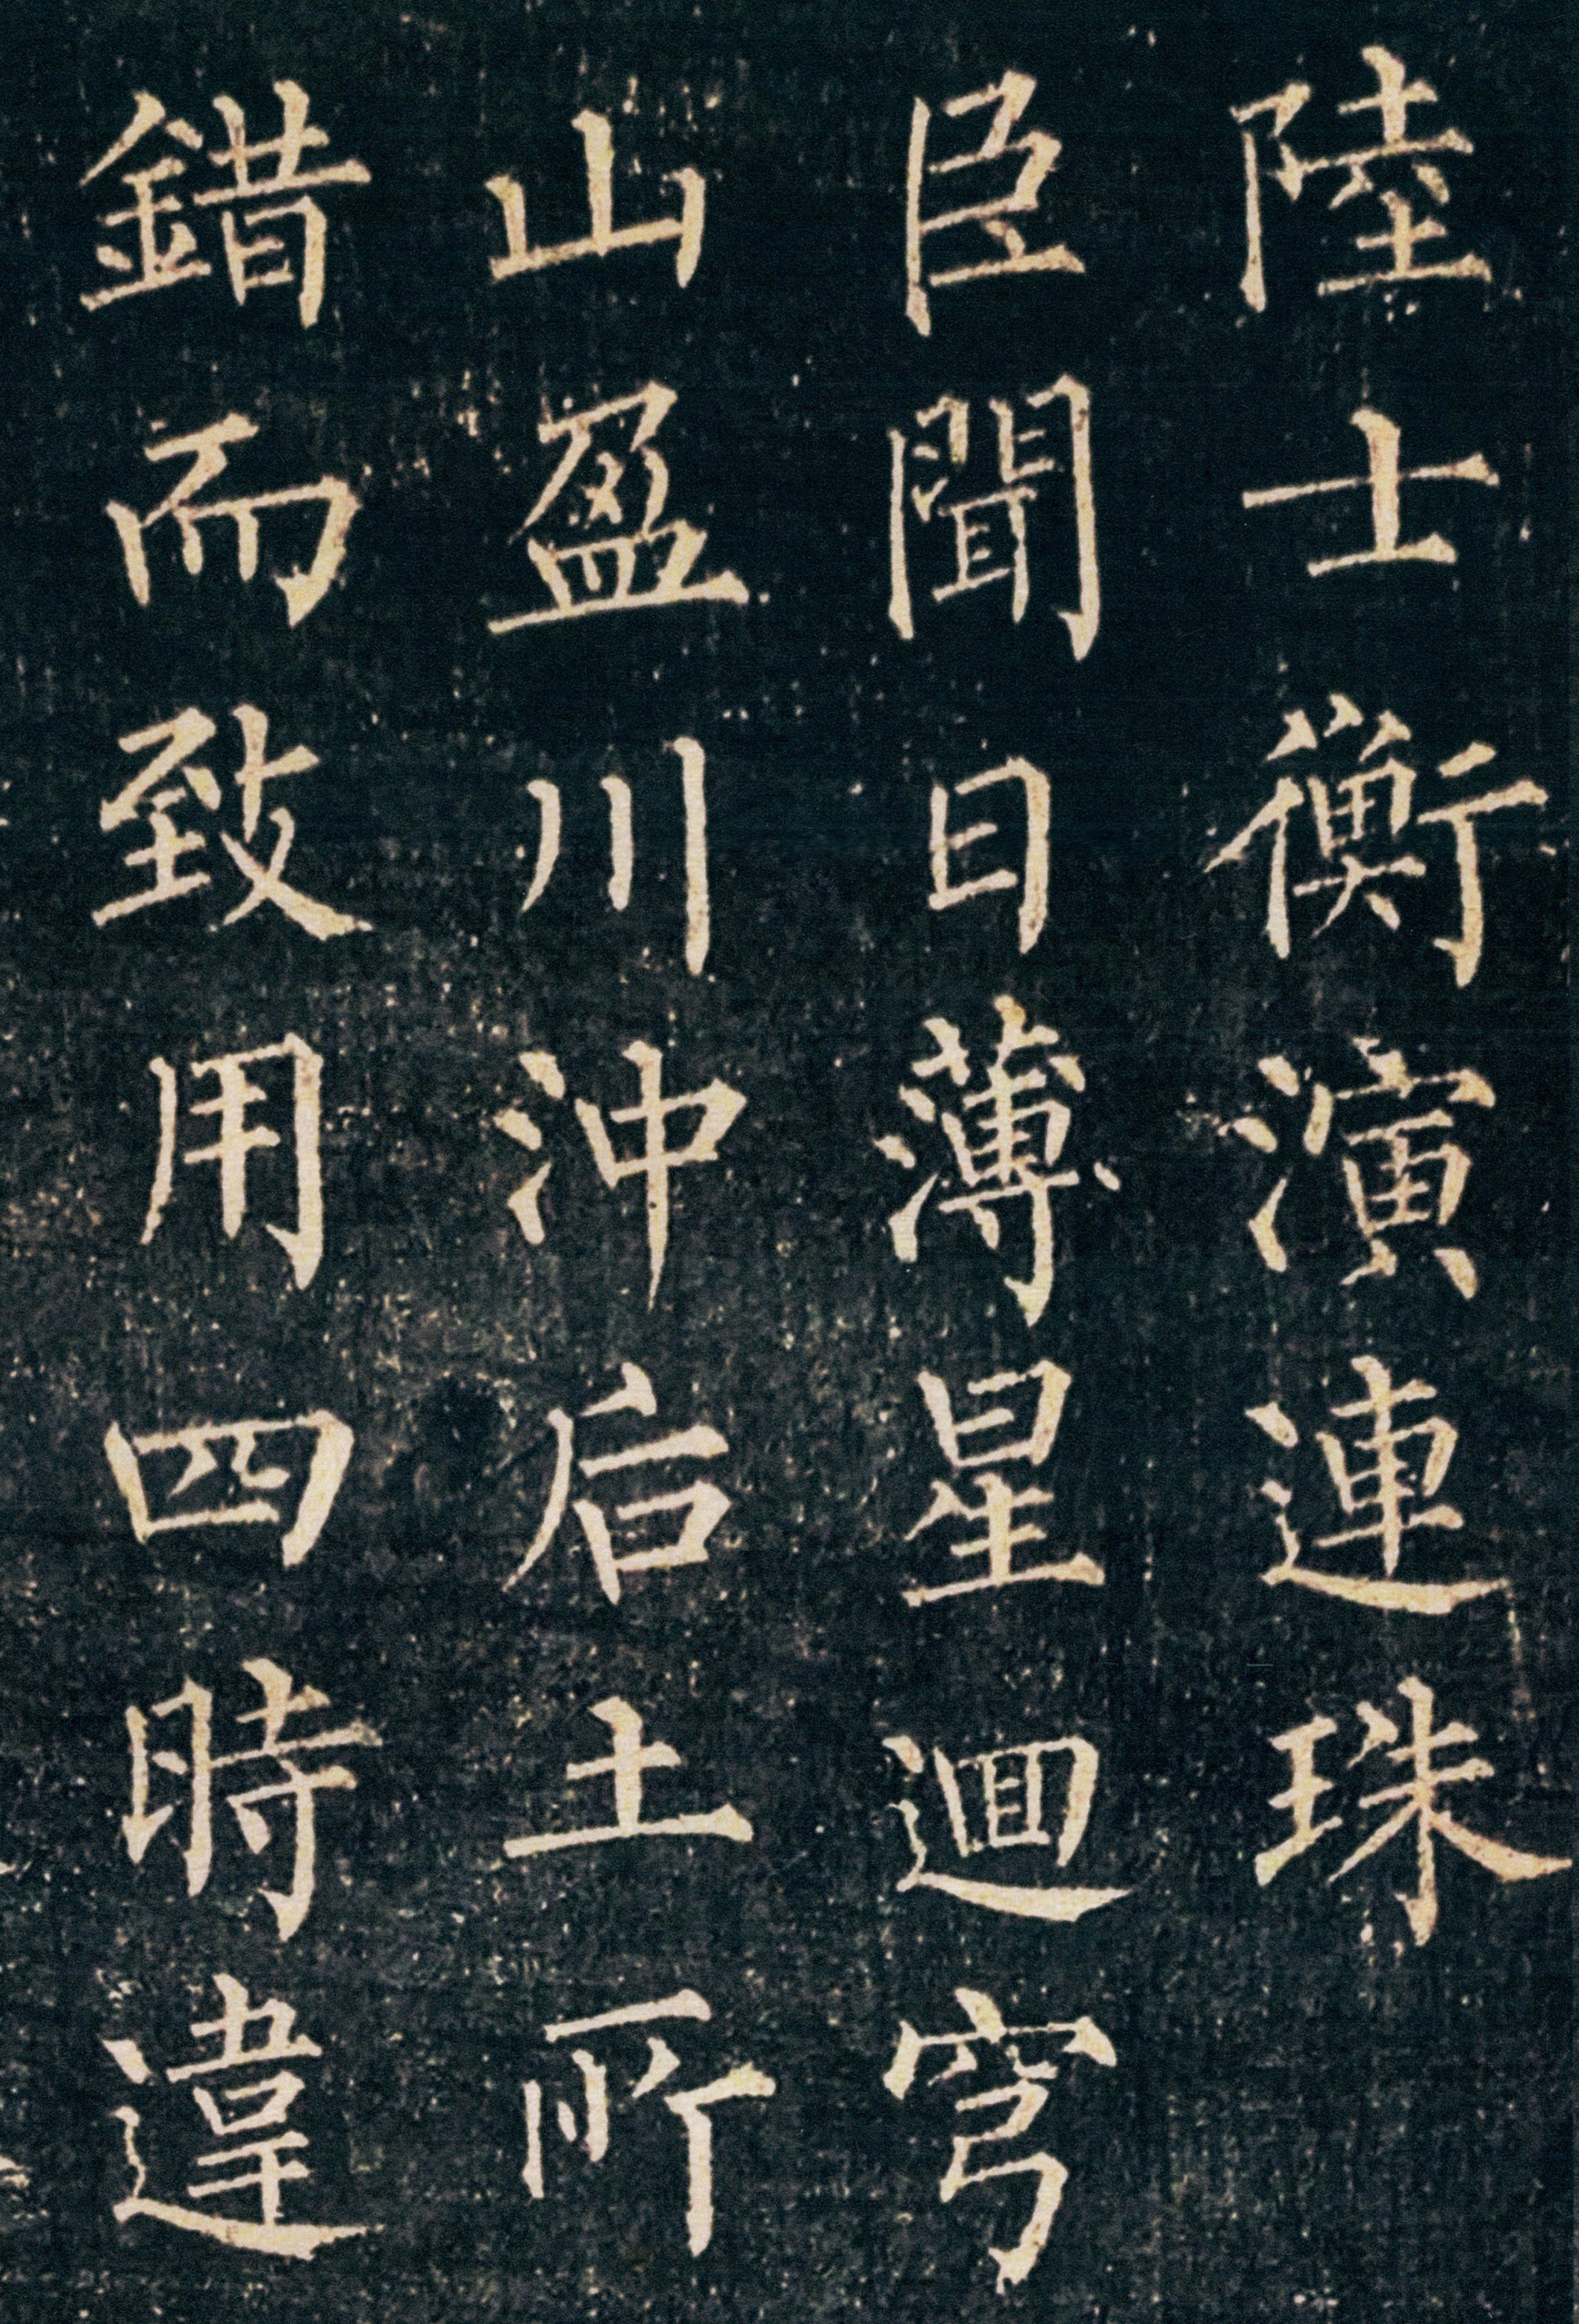 陸士衡演連珠
臣聞日薄星迴穹
山盈川沖后土所
錯而致用四時違